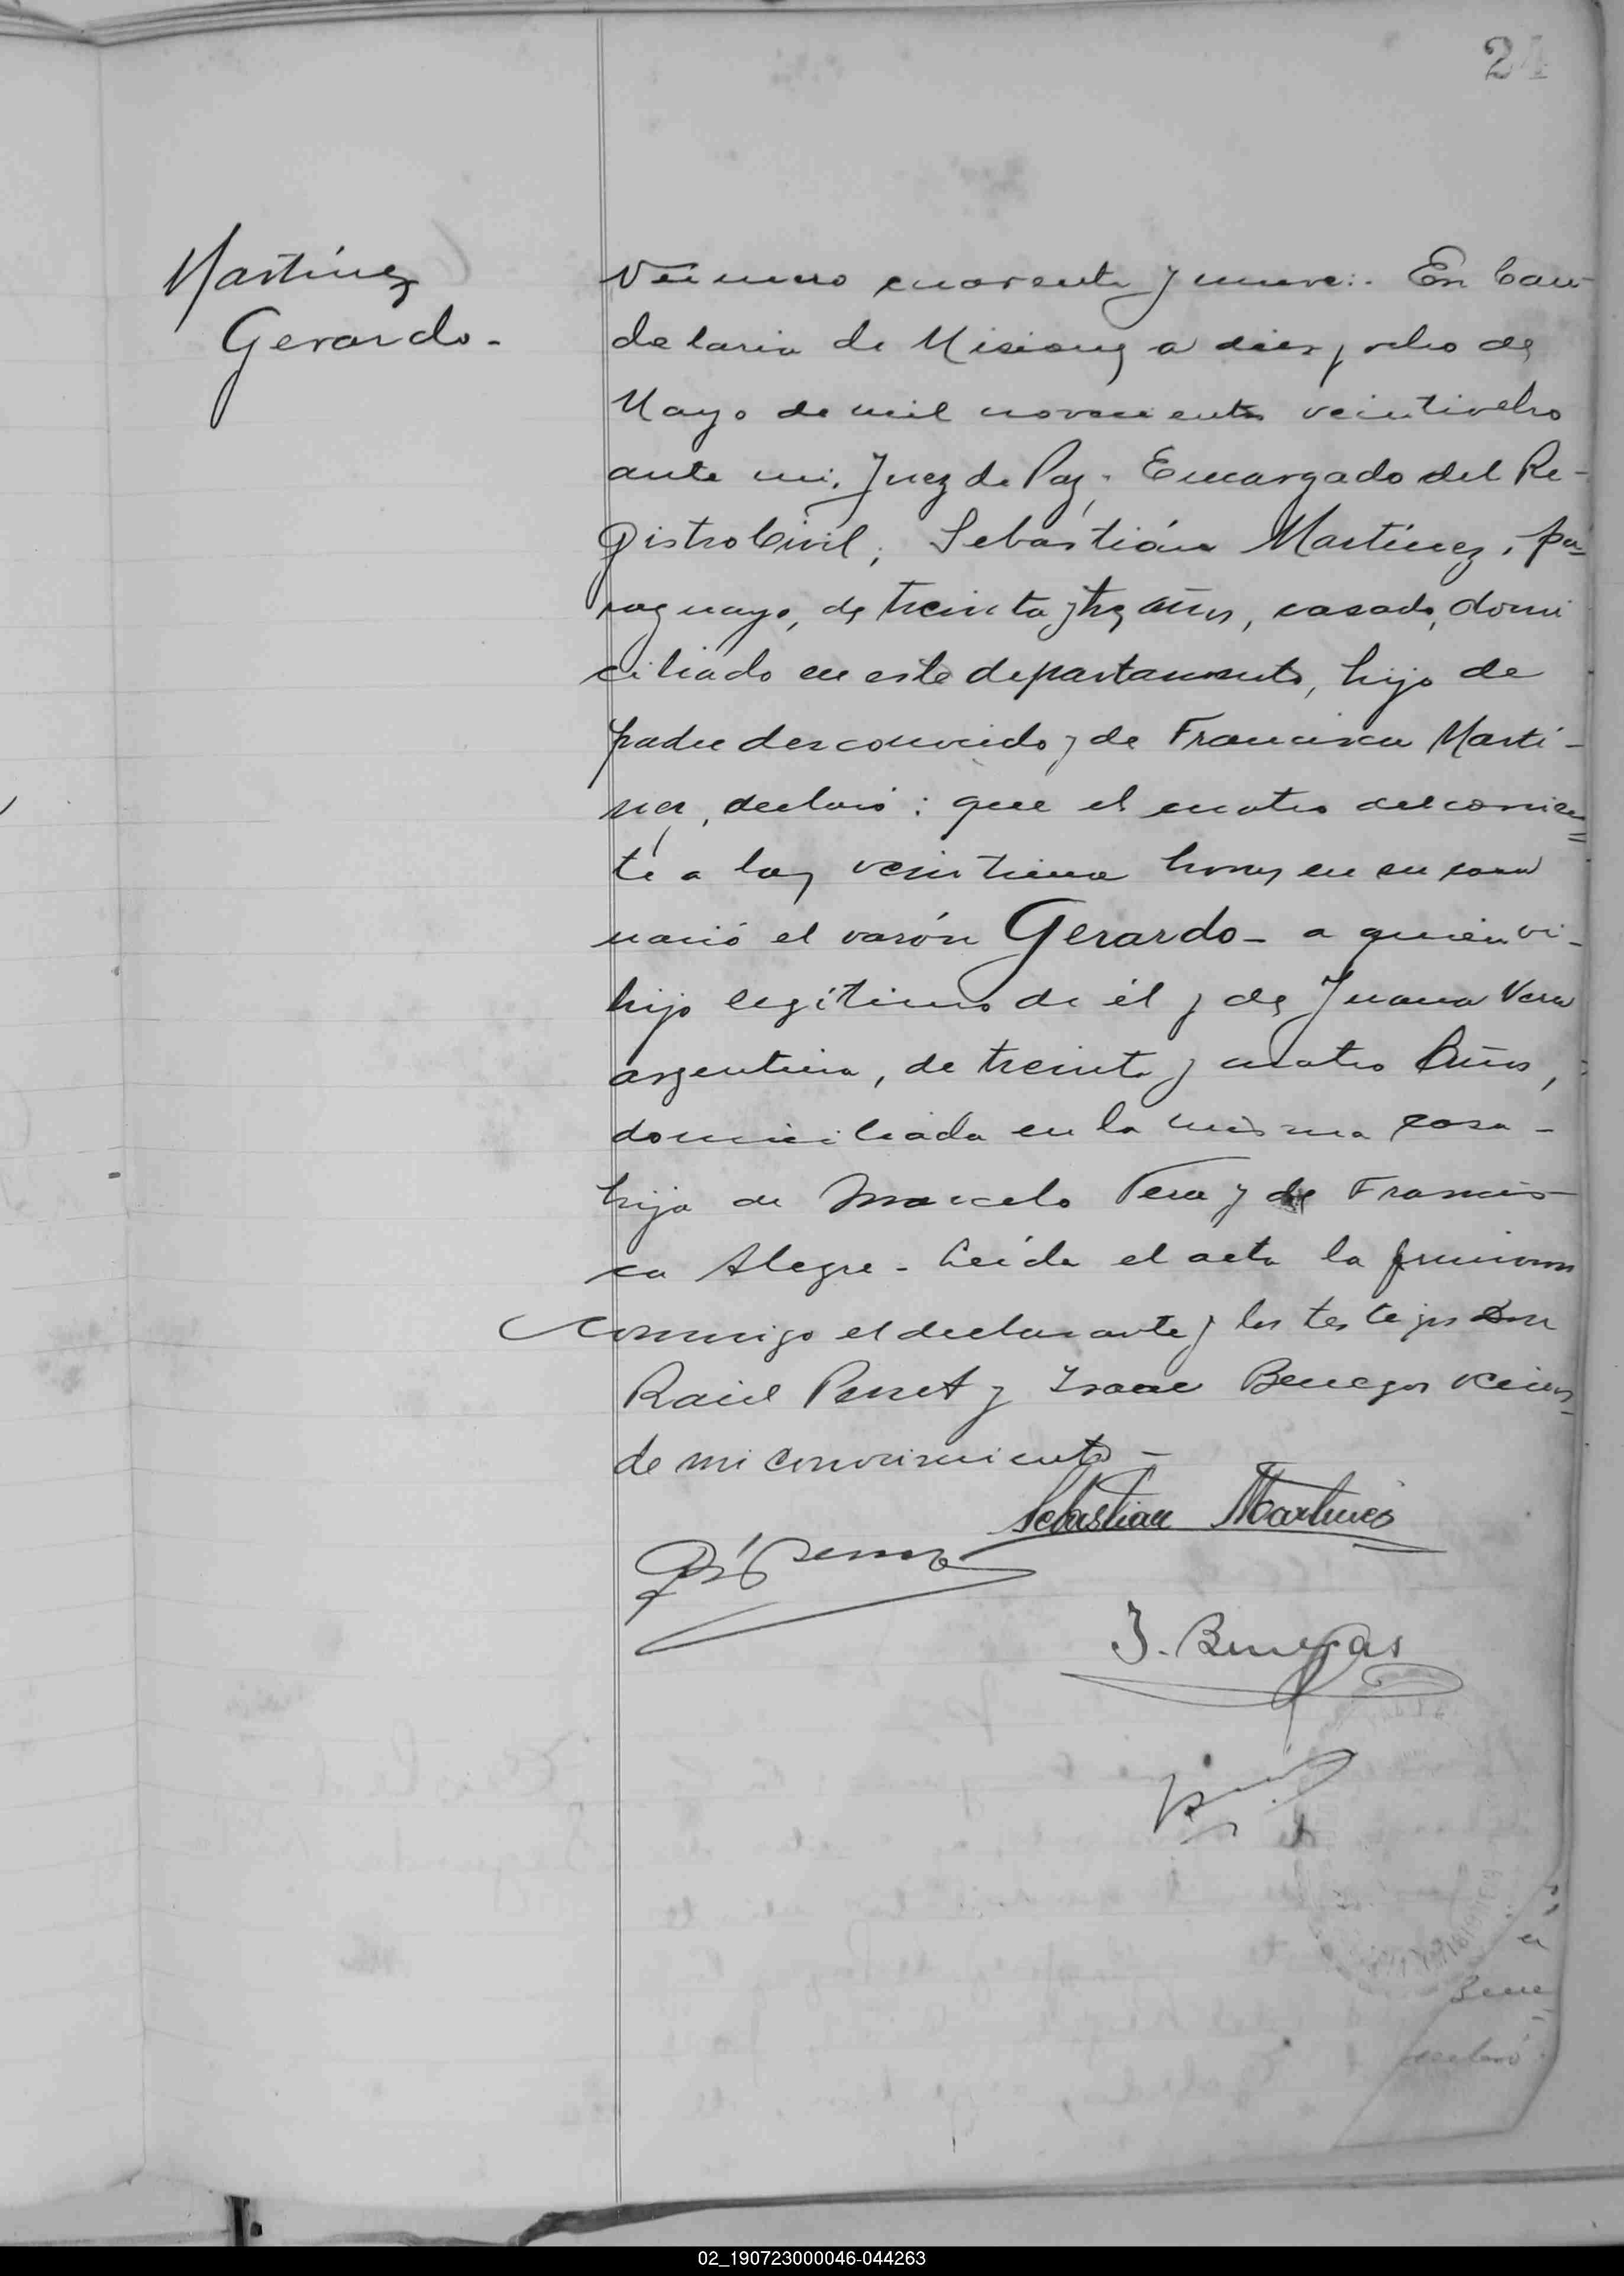 24
Martínez
Gerardo -
Número cuarenta y nueve:. En Can-
delaria de Misiones a diez y ocho de
Mayo de mil novecientos veintiocho
ante mi, Juez de Paz, Encargado del Re-
gistro Civil, Sebastián Martínez, pa-
raguayo, de treinta y tres años, casado, domi
ciliado en este departamento, hijo de
padre desconocido y de Francisca Marti-
nez, declaró: que el cuatro del corrien-
te a las veintiuna horas en su casa
nació el varón Gerardo - a quien vi -
hijo legítimo de él y de Juana Vera
argentina, de treinta y cuatro años,
domiciliada en la misma casa -
hija de Marcelo Vera y de Francis-
ca Alegre - Leída el acta la firmaron
conmigo el declarante y los testigos Don
Raúl Perret y Isaac Benegas vecinos
de mi conocimiento -
Sebastian Martinez
J. Benegas
Bene
declaró
02_190723000046-044263